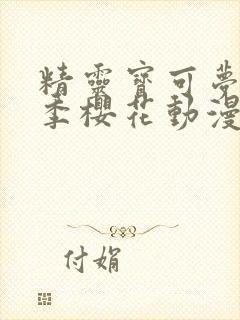 精靈寶可夢
季櫻花動漫
付娟